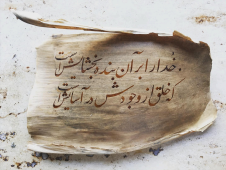 خدا را بر آن بنده بخشایش است
که خلق از وجودش در آسایش است